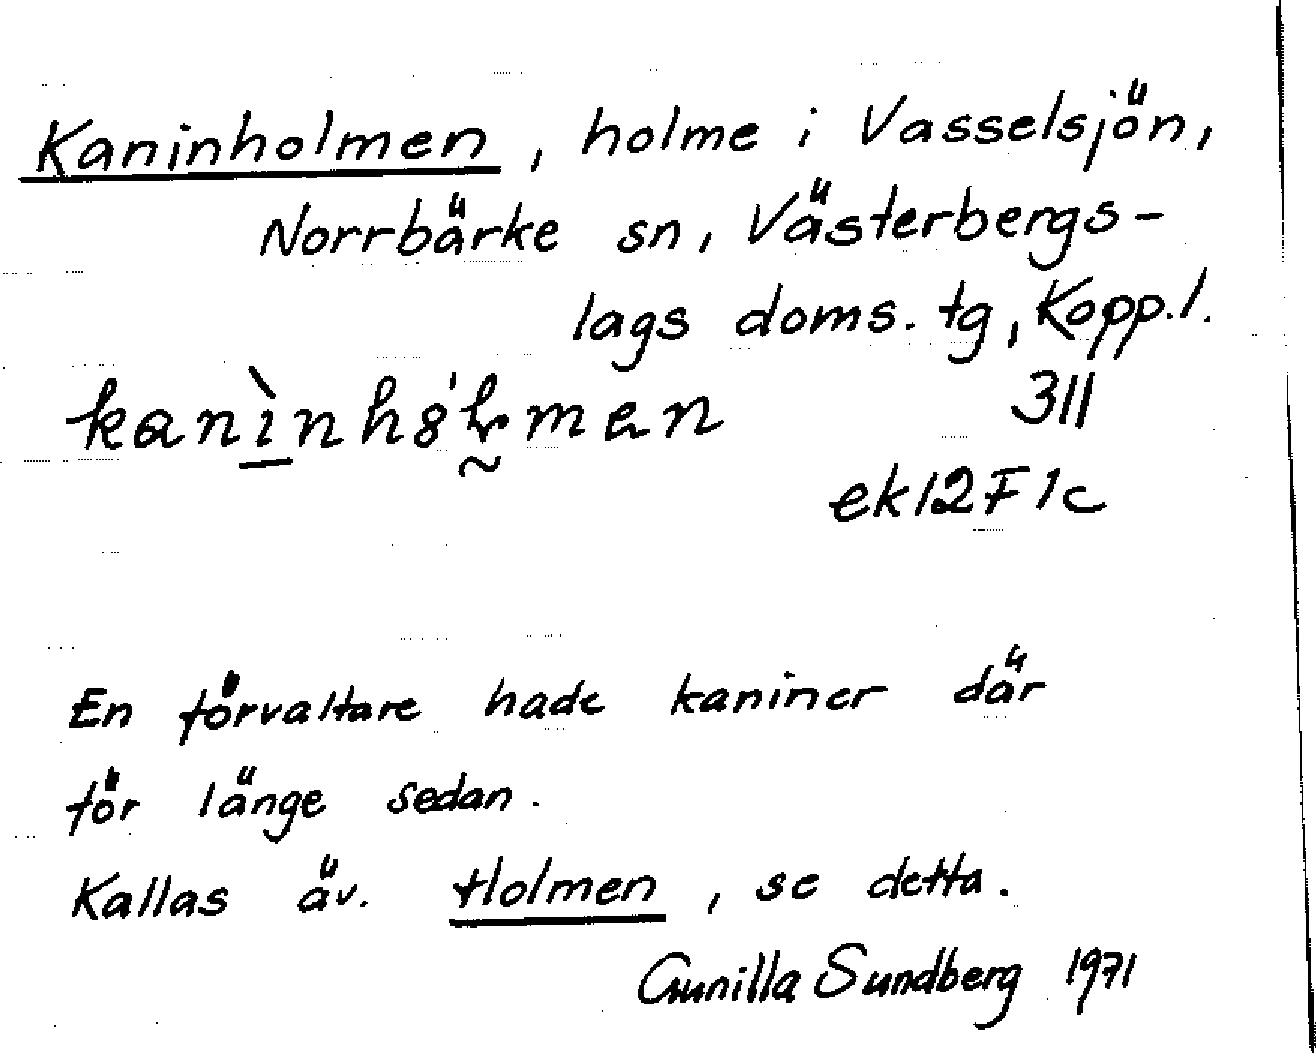 Kaninholmen, holme i Vasselsjön,
Norrbärke sn, Västerbergs-
lags doms. tg, Kopp.l.
311
ek12F1c
En förvaltare hade kaniner där
för länge sedan.
Kallas äv. Holmen, se detta.
Gunilla Sundberg 1971